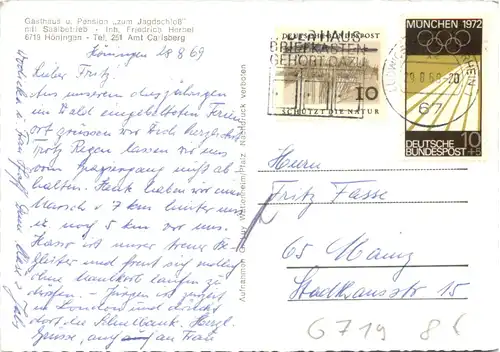 Gasthaus u. Pension „zum Jagdschloß"
mit Saalbetrieb - Inh. Friedrich Hernel
6719 Höningen - Tel. 251 Amt Carlsberg
Höningen 28.8.69
Lieber Fritz,
Aus unserem
im Wald eingebetteten Ferien
ort grüssen wir Dich herzlichst
Trotz Regen lassen wir uns
vom Spaziergang nicht ab-
halten. Heute haben wir einen
Marsch v 7 km hinter uns
u. noch 5 km vor uns.
ist unser treuer Be-
gleiter und freut sich
ohne Maulkorb laufen zu
dürfen. - Jürgen ist zurzeit
in London und drückt
dort die Schulbank. Herzl.
Grüsse, auch an Frau
Aufnahmen Wattenheim/Pfalz Nachdruck verboten
INS HAUS
BRIEFKASTEN
GEHÖRT DAZU
DEUTSCHE BUNDESPOST
10
SCHÜTZT DIE NATUR
67
MÜNCHEN 1972
10
+5
DEUTSCHE
BUNDESPOST
Herrn
Fritz Fasse
65 Mainz
Stadthausstr 15
6719 8k